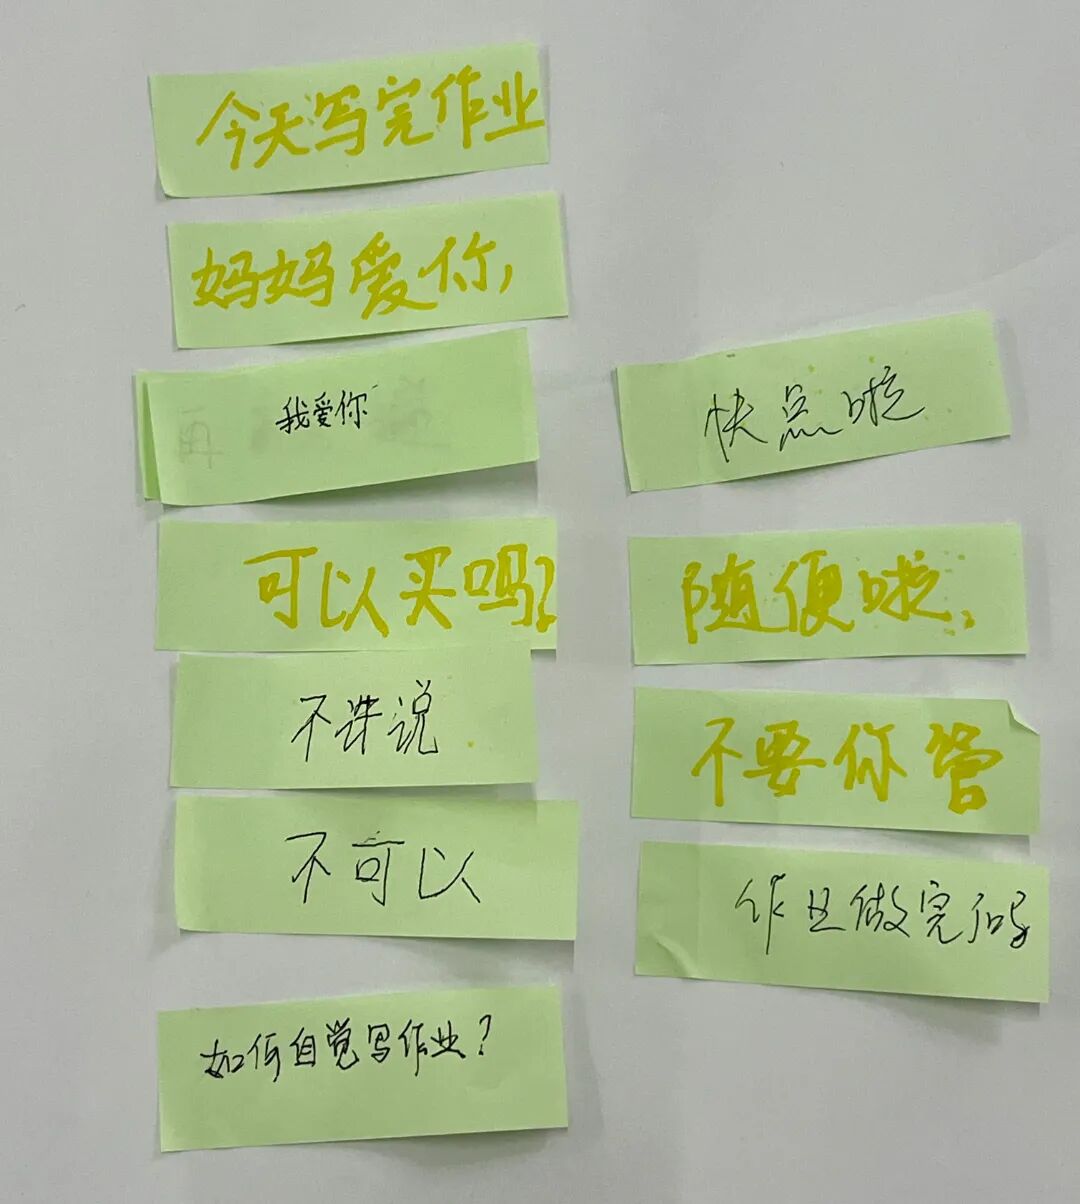 今天写完作业
妈妈爱你,
我爱你
可以买吗?
不许说
不可以
如何自觉写作业?
快点啦
随便啦,
不要你管
作业做完了吗